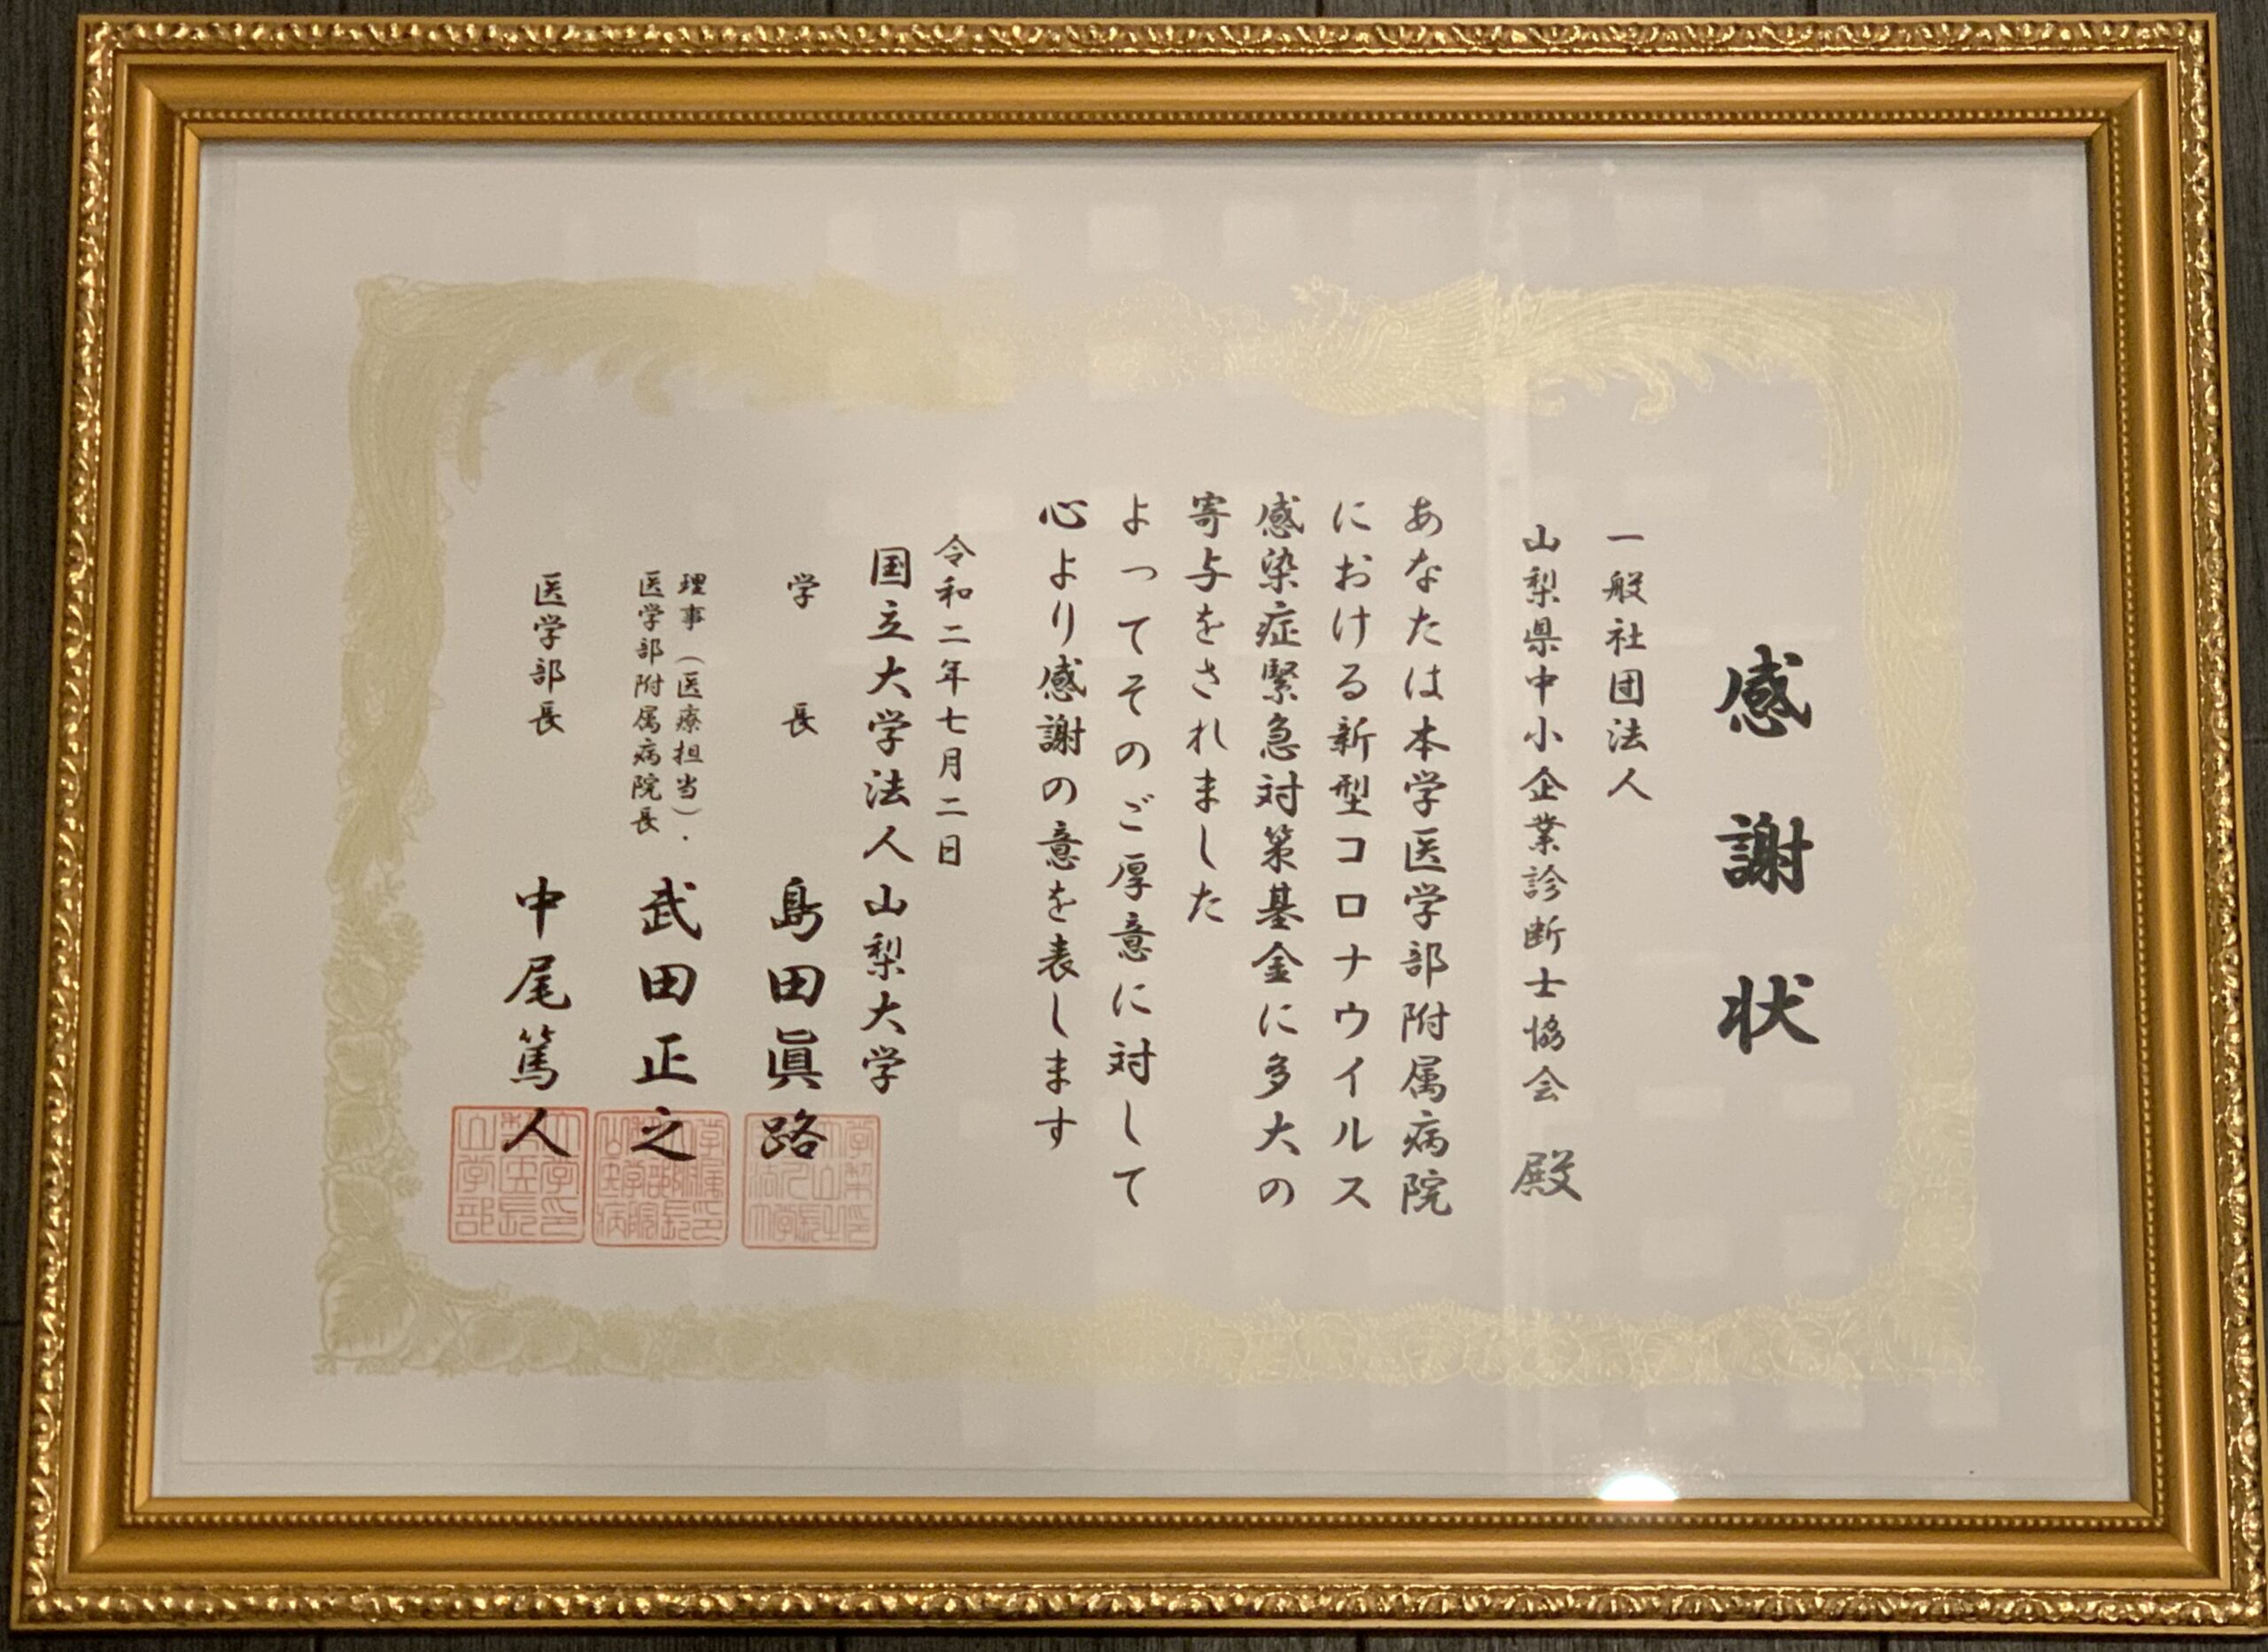 感謝状
一般社団法人
山梨県中小企業診断士協会 殿
あなたは本学医学部附属病院
における新型コロナウイルス
感染症緊急対策基金に多大の
寄与をされました
よってそのご厚意に対して
心より感謝の意を表します
令和二年七月二日
国立大学法人山梨大学
学長 島田眞路
理事(医療担当)・
医学部附属病院長 武田正之
医学部長 中尾篤人